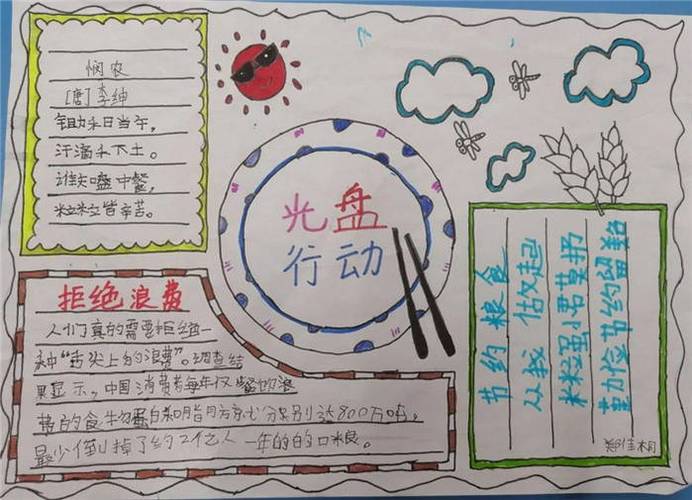 悯农
[唐]李绅
锄禾日当午，
汗滴禾下土。
谁知盘中餐，
粒粒皆辛苦。
光盘
行动
拒绝浪费
人们真的需要拒绝一
种“舌尖上的浪费”。调查结
果显示，中国消费者每年仅餐饮浪
费的食物蛋白和脂肪就分别达800万吨，
最少倒掉了约2亿人一年的的口粮。
节约粮食
从我做起
米粒虽小君莫扔
勤俭节约留